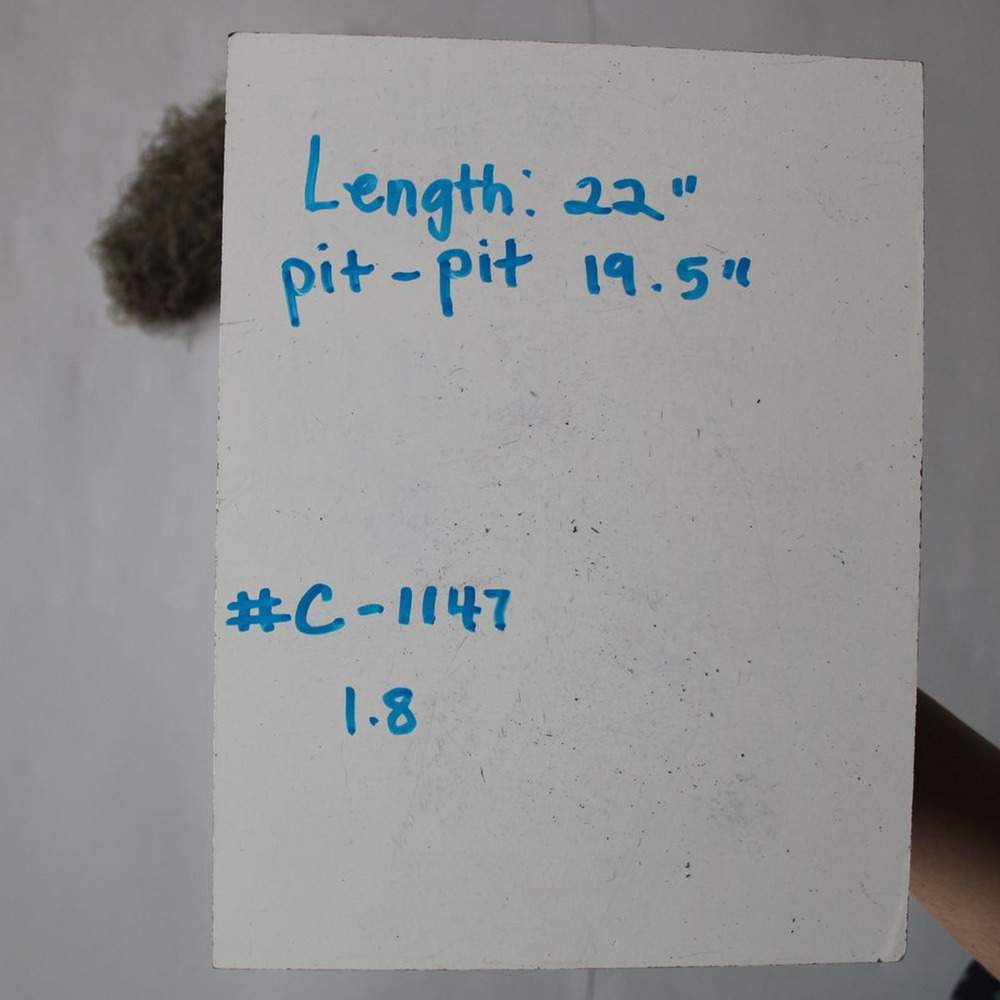 Length: 22"
pit-pit 19.5"
#C-1147
1.8